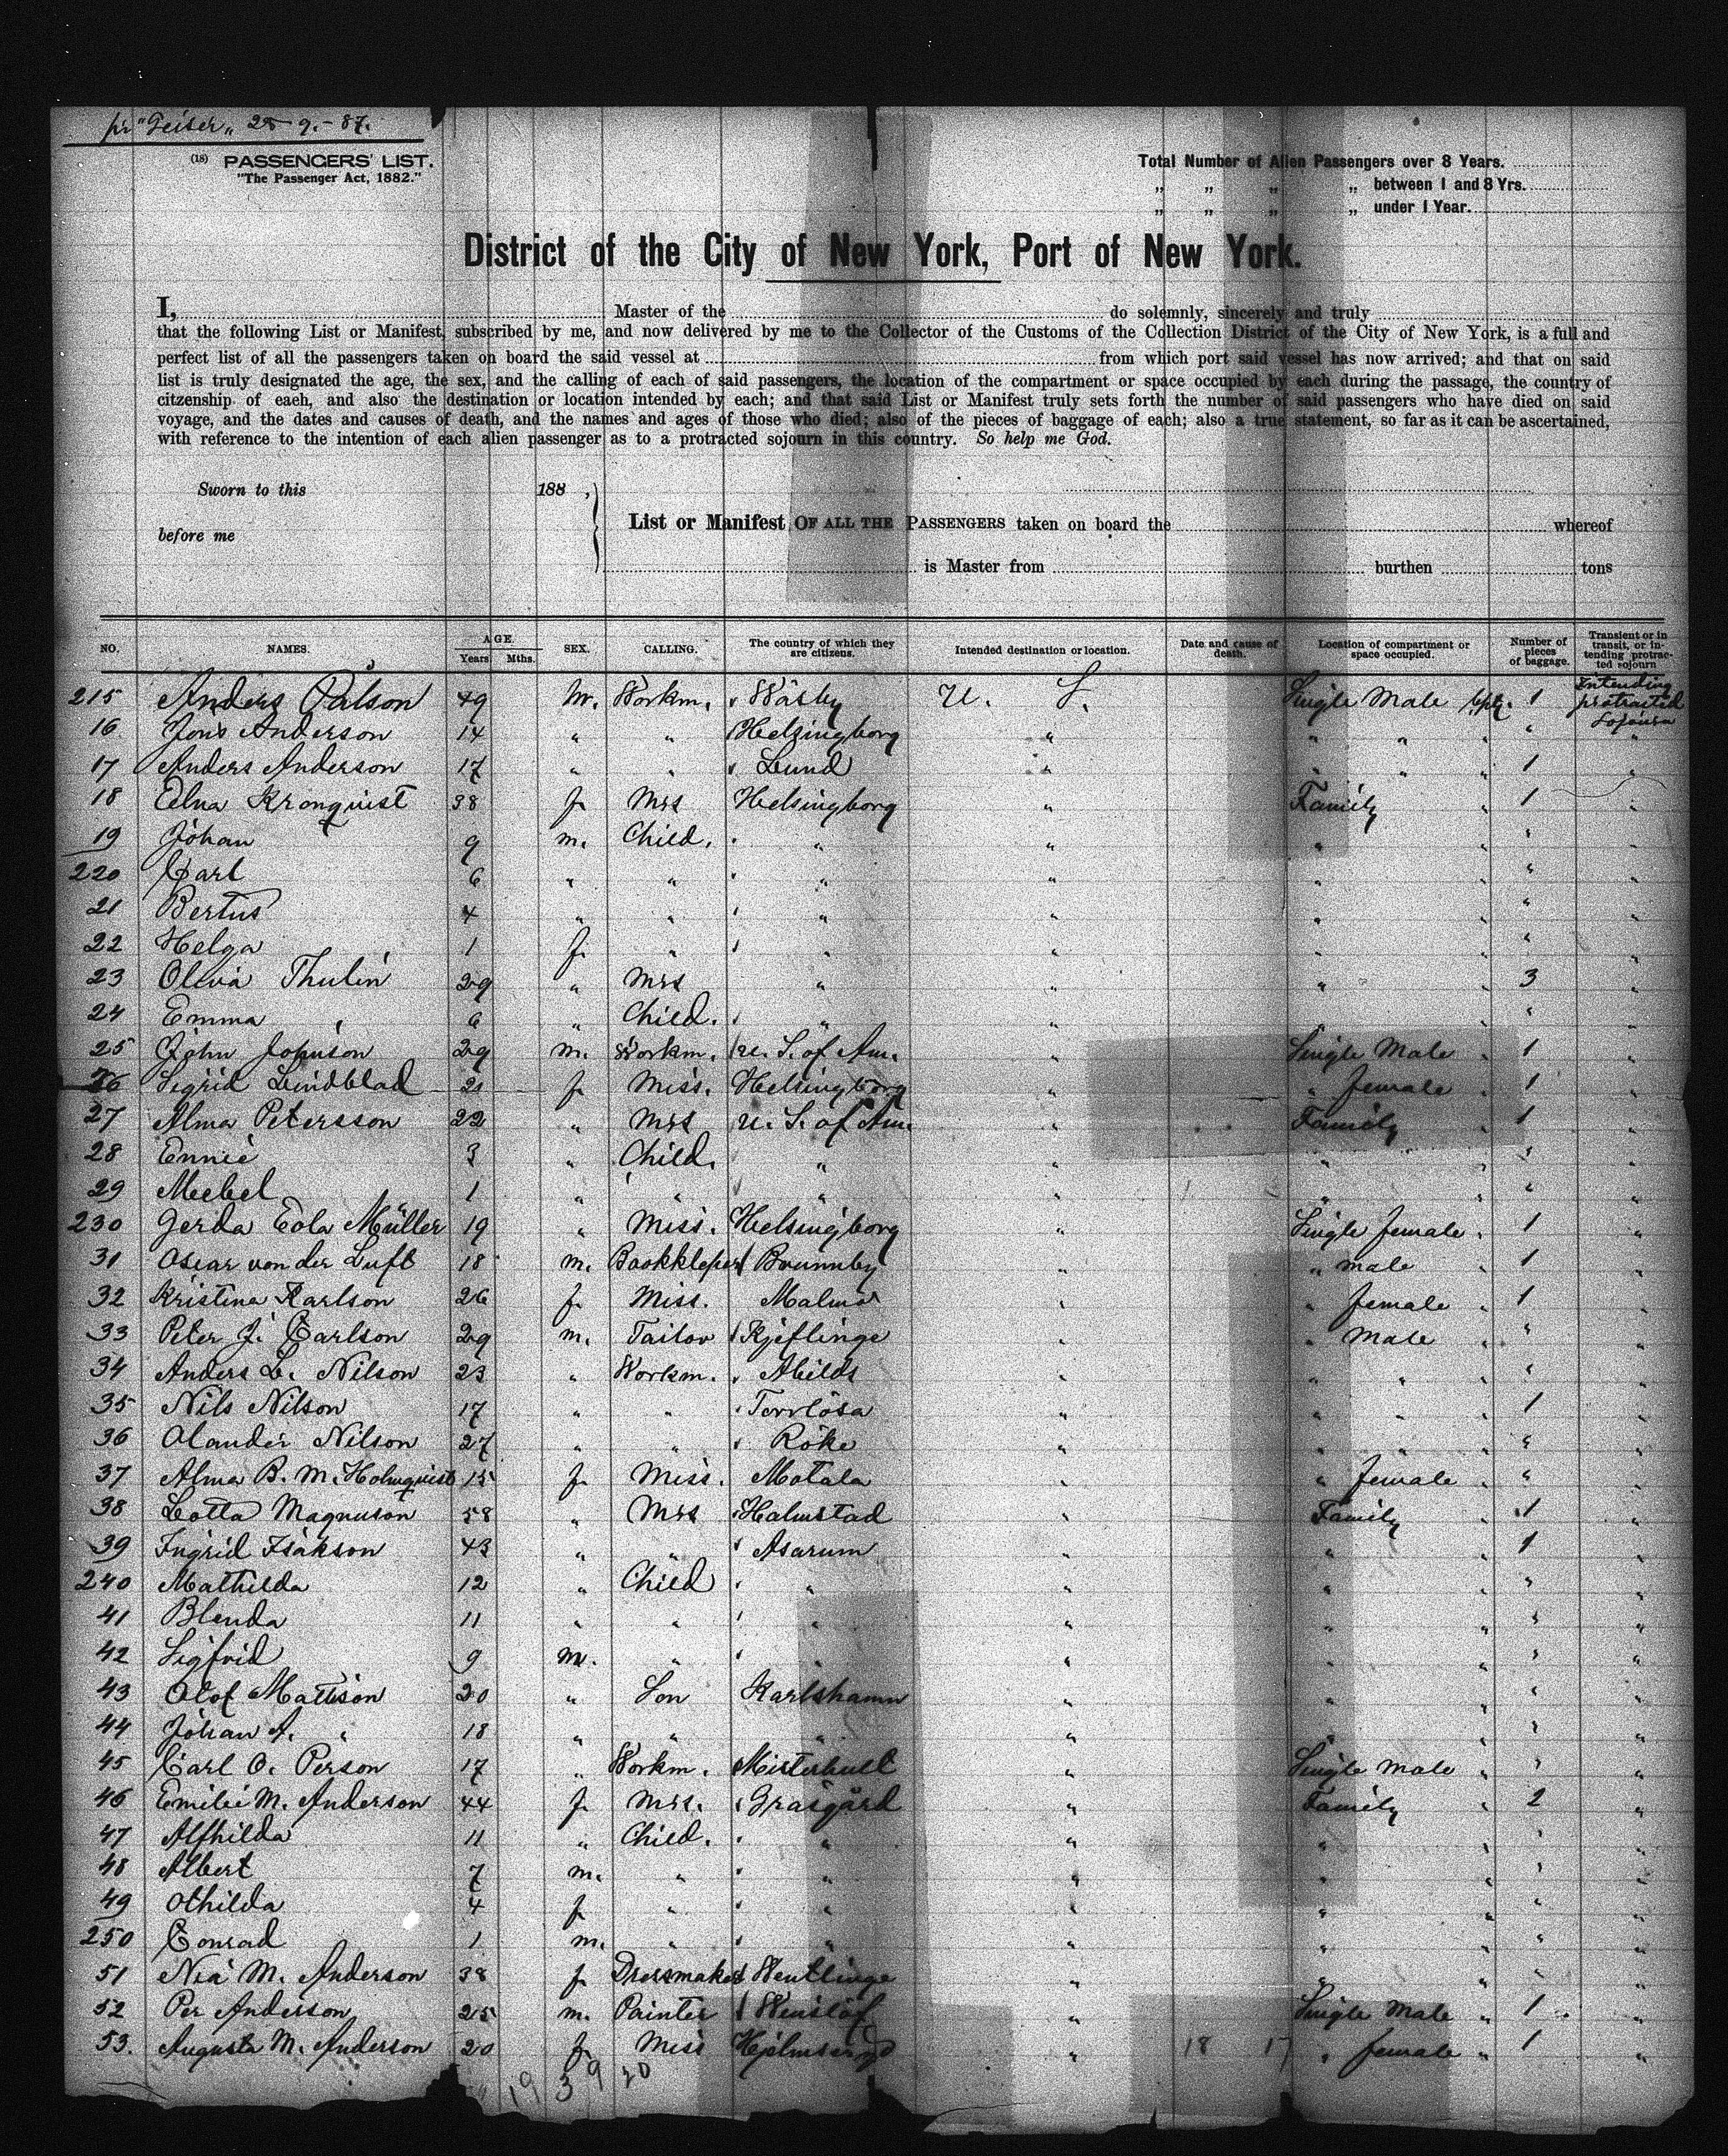 pr "Geiser" 25 9.-87.
(18) PASSENGERS' LIST.
"The Passenger Act, 1882."
Total Number of Alien Passengers over 8 Years.
„ „ „ „ between 1 and 8 Yrs.
„ „ „ „ under 1 Year.
District of the City of New York, Port of New York.
I, Master of the do solemnly, sincerely and truly
that the following List or Manifest, subscribed by me, and now delivered by me to the Collector of the Customs of the Collection District of the City of New York, is a full and
perfect list of all the passengers taken on board the said vessel at from which port said vessel has now arrived; and that on said
list is truly designated the age, the sex, and the calling of each of said passengers, the location of the compartment or space occupied by each during the passage, the country of
citzenship of eaeh, and also the destination or location intended by each; and that said List or Manifest truly sets forth the number of said passengers who have died on said
voyage, and the dates and causes of death, and the names and ages of those who died; also of the pieces of baggage of each; also a true statement, so far as it can be ascertained,
with reference to the intention of each alien passenger as to a protracted sojourn in this country. So help me God.
Sworn to this 188 ,
before me
List or Manifest OF ALL THE PASSENGERS taken on board the whereof
is Master from burthen tons
NO. NAMES. AGE. Years Mths. SEX. CALLING. The country of which they are citizens. Intended destination or location. Date and cause of death. Location of compartment or space occupied. Number of pieces of baggage. Transient or in transit, or intending protracted sojourn
215 Anders Pålson 49 m. Workm. Wäsby U. S. Single Male 1 Intending protracted Sojourn
16 Jöns Anderson 14 " " Helsingborg " " " " " "
17 Anders Anderson 17 " " Lund " " " " 1 "
18 Edna Kronquist 38 f. Mrs Helsingborg " Family " 1 "
19 Johan 9 m. Child. " " " " " "
220 Carl 6 " " " " " " " "
21 Bertus 4 " " " " " " " "
22 Helga 1 f. " " " " " " "
23 Olivia Thulin 29 " Mrs " " " " 3 "
24 Emma " 6 " Child. " " " " " "
25 John Johnson 29 m. Workm. U. S. of Am. " Single Male " 1 "
26 Sigrid Lindblad 21 f. Miss. Helsingborg " " female " 1 "
27 Alma Petersson 22 " Mrs U. S. of Am. " Family " 1 "
28 Ennie 3 " Child. " " " " " "
29 Mebel 1 " " " " " " " "
230 Gerda Eola Müller 19 " Miss. Helsingborg " Single female " 1 "
31 Oscar von der Luft 18 m. Bookkeper Brunnby " " male " 1 "
32 Kristina Karlson 26 f. Miss. Malmö " " female " 1 "
33 Peter J. Carlson 29 m. Tailor Kjeflinge " " Male " " "
34 Anders L. Nilson 23 " Workm. " " " " " "
35 Nils Nilson 17 " " Torrlösa " " " " 1 "
36 Alander Nilson 27 " " Röke " " " " " "
37 Alma B. M. Holmquist 15 f. Miss. Motala " " female " " "
38 Lotta Magnuson 58 " Mrs Halmstad " Family " 1 "
39 Ingrid Isakson 43 " " Asarum " " " 1 "
240 Mathilda 12 " Child " " " " " "
41 Blenda 11 " " " " " " " "
42 Sigfrid 9 m. " " " " " " "
43 Olof Mattison 20 " Son Karlshamn " " " " "
44 Johan A. " 18 " " " " " " " "
45 Carl O. Person 17 " Workm. Misterhult " Single male " " "
46 Emilie M. Anderson 44 f. Mrs. Gräsgård " Family " 2 "
47 Alfhilda 11 " Child. " " " " " "
48 Albert 7 m. " " " " " " "
49 Othilda 4 f. " " " " " " "
250 Conrad 1 m. " " " " " " "
51 Nia M. Anderson 38 f. Dressmaker Wentlinge " " " " "
52 Per Anderson 25 m. Painter " Single Male " 1 "
53. Augusta M. Anderson 20 f. Miss " 18 17 " female " 1 "
19 3 9 20